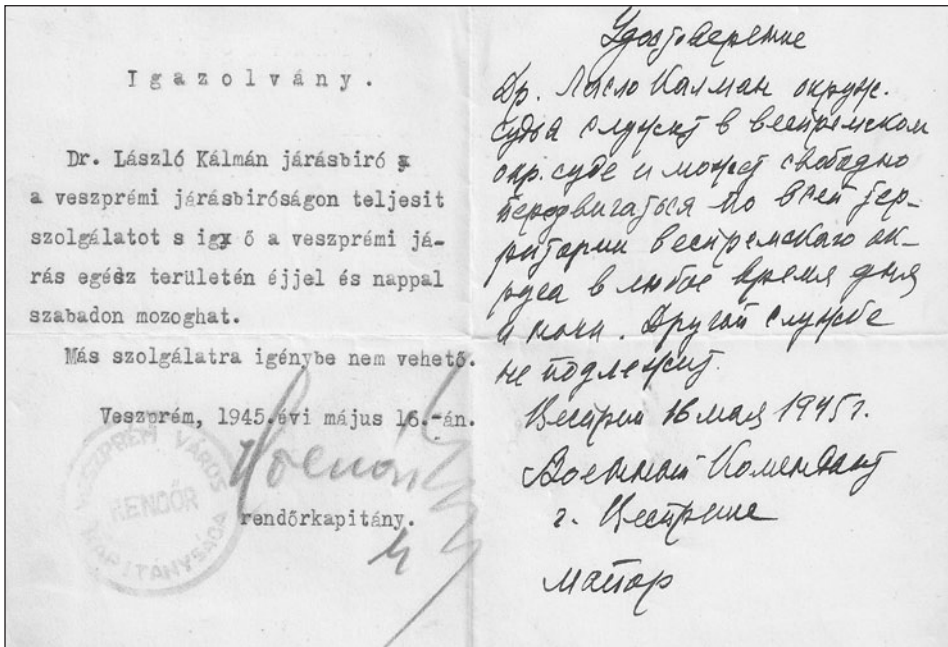 Igazolvány.
Dr. László Kálmán járásbiró
a veszprémi járásbiróságon teljesit
szolgálatot s igy ő a veszprémi já-
rás egész területén éjjel és nappal
szabadon mozoghat.
Más szolgálatra igénybe nem vehető.
Veszprém, 1945.évi május 16.-án.
rendőrkapitány.
VESZPRÉM VÁROS
RENDŐR
KAPITÁNYSÁGA
Удостоверение
Др. Ласло Калман окруж.
судья служит в веспремском
окр. суде и может свободно
передвигаться по всей тер-
ритории веспремскаго ок-
руга в любое время дня
и ночи. Другой службе
не подлежит.
Веспрем 16 мая 1945 г.
Военный Комендант
г. Веспрема
майор